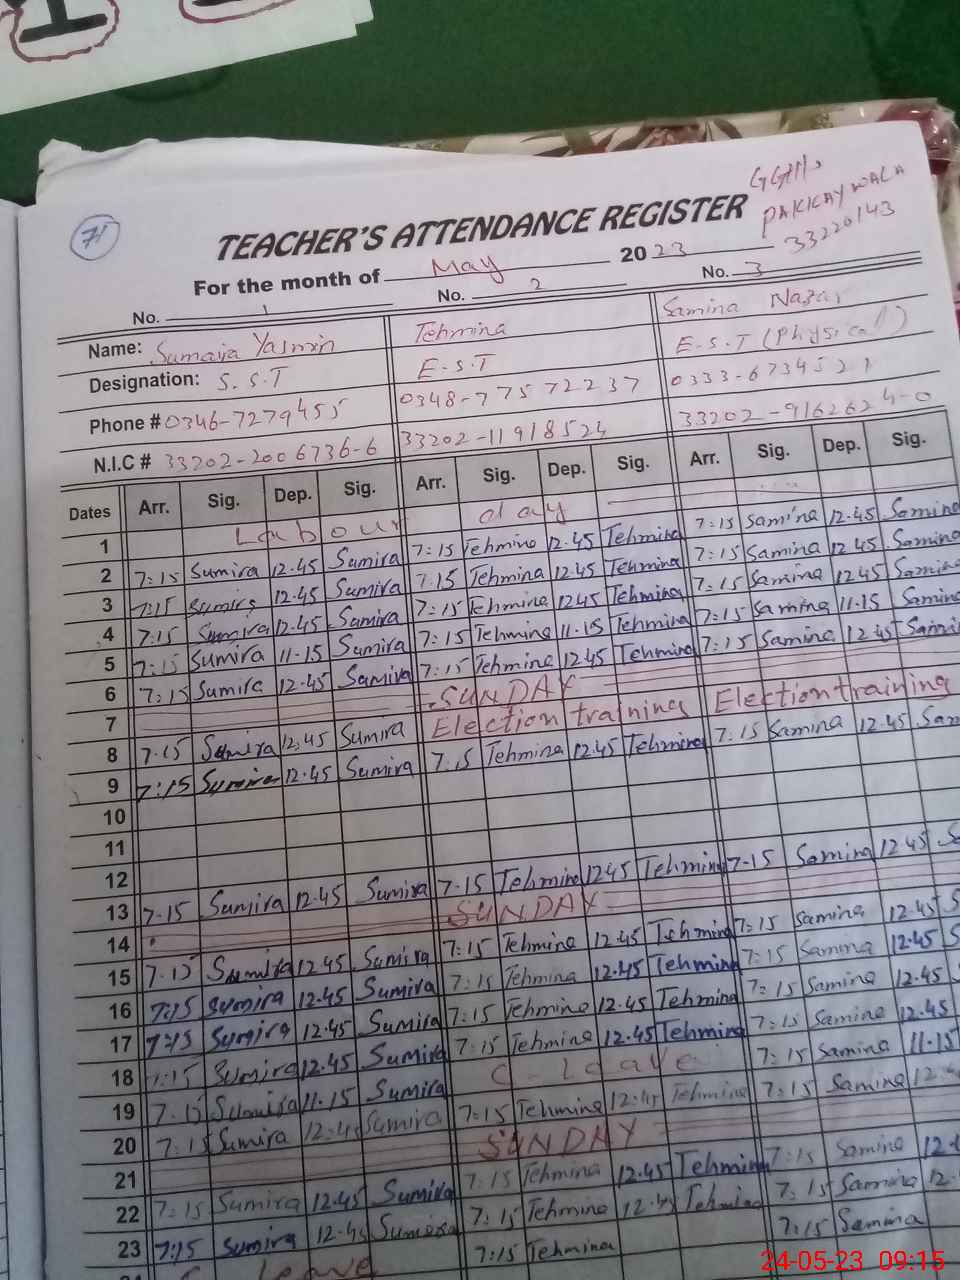 71
GGHS
PAKKAY WALA
33220143
TEACHER'S ATTENDANCE REGISTER
For the month of May 2023
No. 1 No. 2 No. 3
Name: Sumaira Yasmin Tehmina Samina Nazar
Designation: S.S.T E-S.T E-S.T (Physical)
Phone # 0346-7279455 0348-77572237 0333-6734521
N.I.C # 33202-2006736-6 33202-11918524 33202-9162624-0
Dates Arr. Sig. Dep. Sig. Arr. Sig. Dep. Sig. Arr. Sig. Dep. Sig.
1 Labour day
2 7:15 Sumira 12.45 Sumira 7:15 Tehmina 12.45 Tehmina 7:15 Samina 12.45 Samina
3 7:15 Sumira 12.45 Sumira 7:15 Tehmina 12.45 Tehmina 7:15 Samina 12.45 Samina
4 7:15 Sumira 12.45 Sumira 7:15 Tehmina 12.45 Tehmina 7:15 Samina 12.45 Samina
5 7:15 Sumira 11-15 Sumira 7:15 Tehmina 11-15 Tehmina 7:15 Samina 11-15 Samina
6 7:15 Sumira 12.45 Sumira 7:15 Tehmina 12.45 Tehmina 7:15 Samina 12.45 Samina
7 SUNDAY
8 7:15 Sumira 12.45 Sumira Election training Election training
9 7:15 Sumira 12.45 Sumira 7:15 Tehmina 12.45 Tehmina 7:15 Samina 12.45 Sam
10
11
12
13 7-15 Sumira 12.45 Sumira 7-15 Tehmina 12.45 Tehmina 7-15 Samina 12.45 S
14 SUNDAY
15 7-15 Sumira 12.45 Sumira 7:15 Tehmina 12.45 Tehmina 7:15 Samina 12.45 S
16 7:15 Sumira 12.45 Sumira 7:15 Tehmina 12.45 Tehmina 7:15 Samina 12.45 S
17 7:15 Sumira 12.45 Sumira 7:15 Tehmina 12.45 Tehmina 7:15 Samina 12.45
18 7:15 Sumira 12.45 Sumira 7:15 Tehmina 12.45 Tehmina 7:15 Samina 12.45
19 7-15 Sumira 11-15 Sumira C-leave 7:15 Samina 11-15
20 7:15 Sumira 12.45 Sumira 7:15 Tehmina 12.45 Tehmina 7:15 Samina 12.4
21 SUNDAY
22 7:15 Sumira 12.45 Sumira 7:15 Tehmina 12.45 Tehmina 7:15 Samina 12.4
23 7:15 Sumira 12.45 Sumira 7:15 Tehmina 12.45 Tehmina 7:15 Samina 12.
leave 7:15 Tehmina 7:15 Samina
24-05-23 09:15